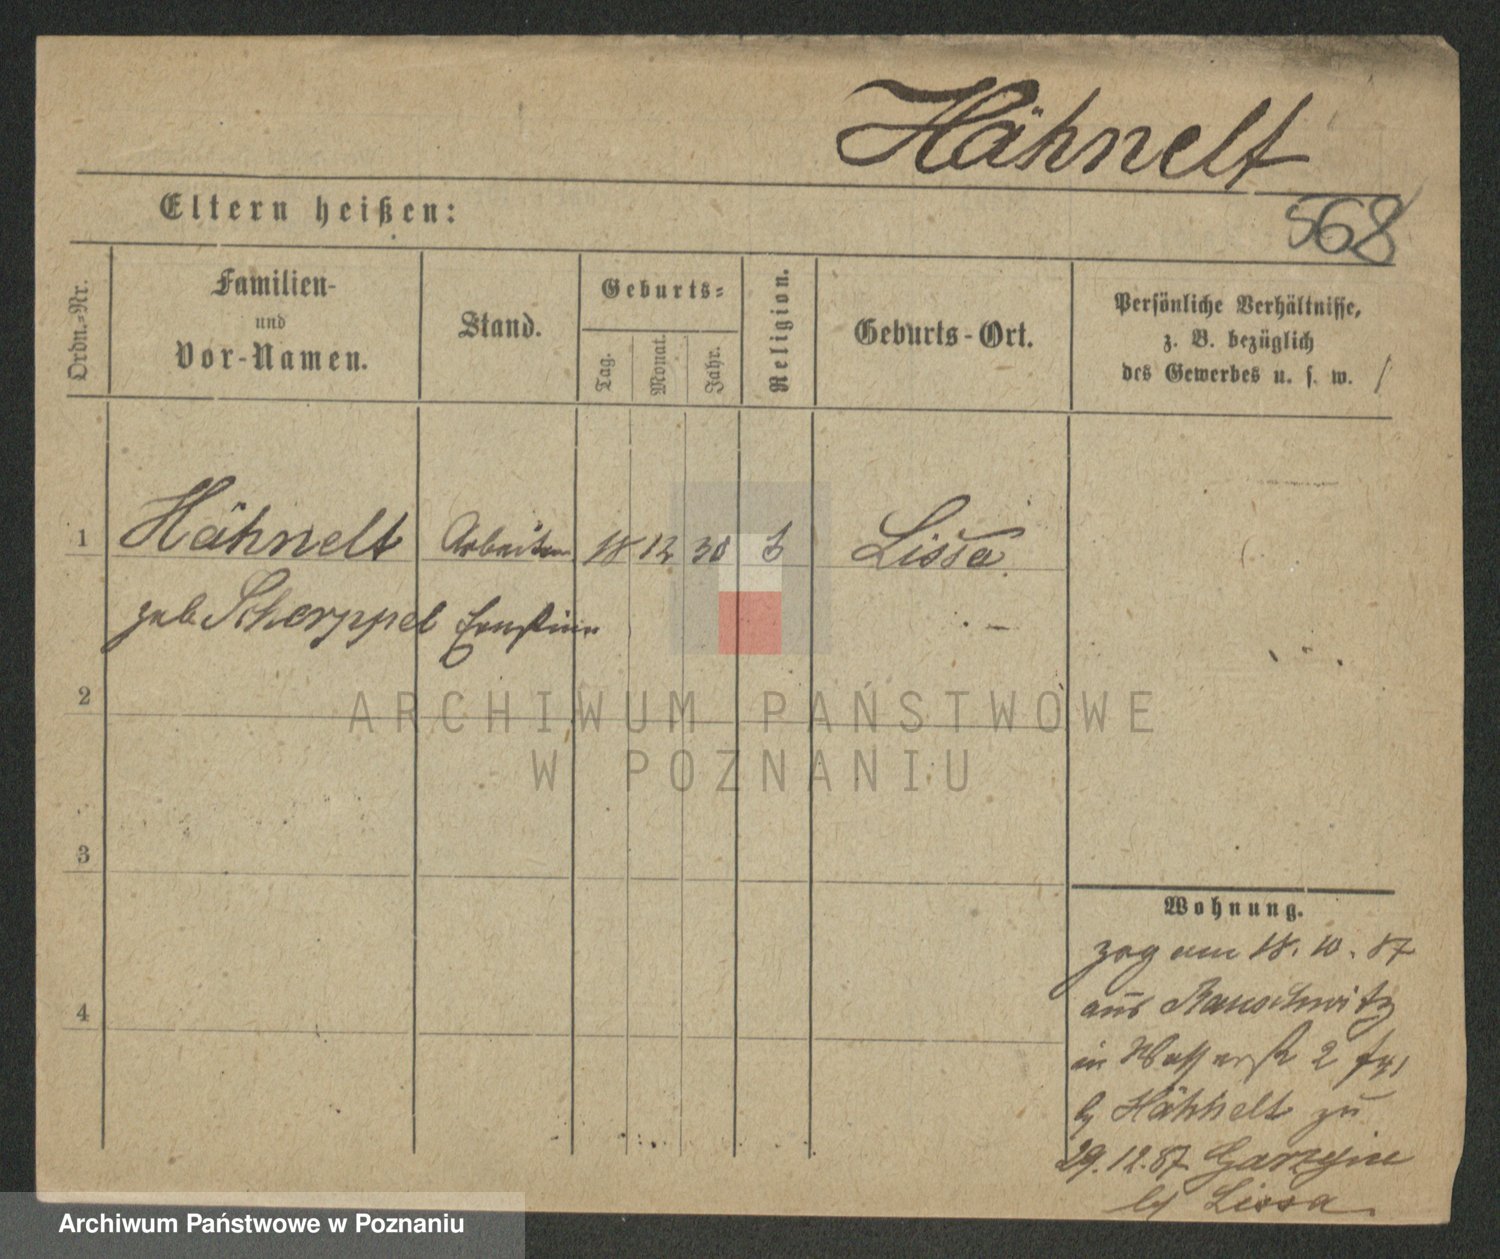 Hähnelt
568
Eltern heißen:
Ordn.-Nr.
Familien-
und
Vor-Namen.
Stand.
Geburts-
Tag.
Monat.
Jahr.
Religion.
Geburts-Ort.
Persönliche Verhältnisse,
z. B. bezüglich
des Gewerbes u. s. w.
1 Hähnelt Arbeiterin 18 12 30 Lissa
geb. Scherppel Ernstine
2
ARCHIWUM PAŃSTWOWE
W POZNANIU
3
4
Wohnung.
zog am 18. 10. 87
aus Rauschwitz
in Wasserstr 2
b/ Hähnelt zu
29.12.87
b/ Lissa.
Archiwum Państwowe w Poznaniu